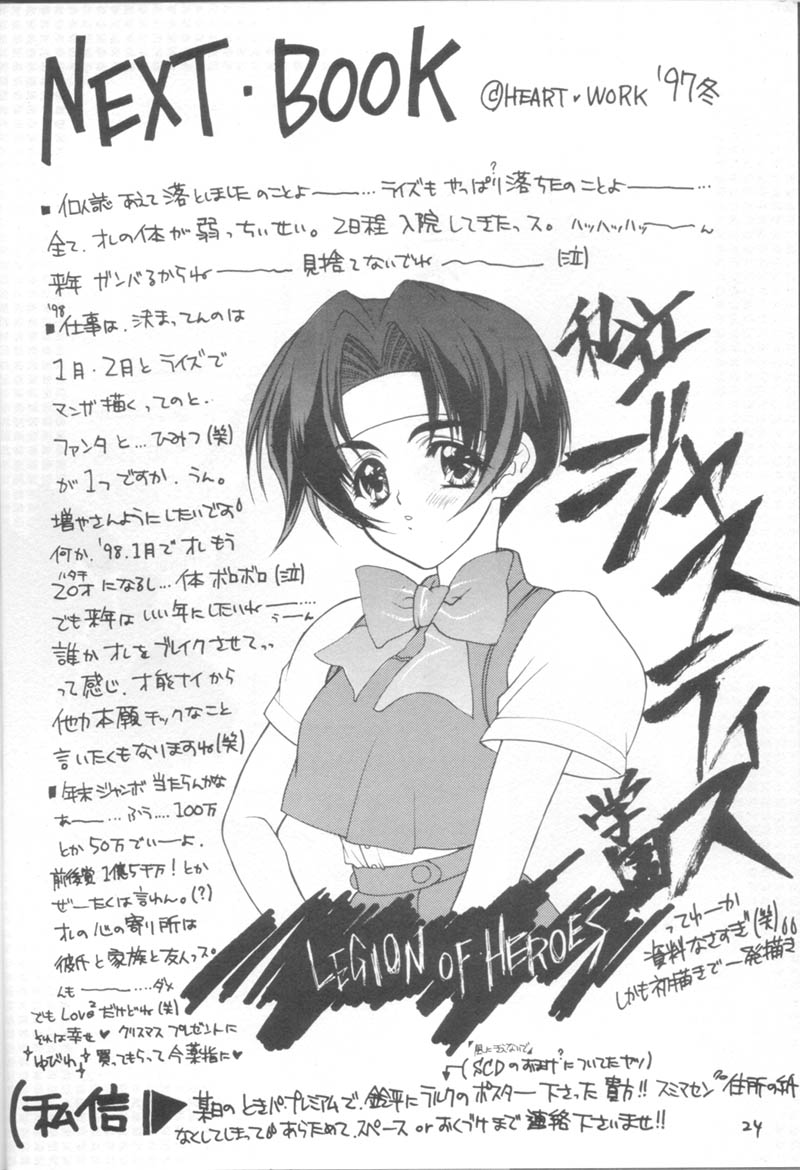 NEXT・BOOK ©HEART♥WORK '97冬
■個人誌 あえて落としましたのことよ――…ライズもやっぱり?落ちたのことよ――…
全て、オレの体が弱っちいせい。2日程入院してきたっス。ハッハッハッ――ん
来年ガンバるからね―― 見捨てないでね――(泣)
■'98仕事は、決まってんのは
1月・2月とライズで
マンガ描くってのと、
ファンタと…ひみつ(笑)
が1つですか、うん。
増やさんようにしたいです
何か、'98.1月でオレもう
20才ハタチになるし…体ボロボロ(泣)
でも来年はいい年にしたいね――…うーん
誰かオレをブレイクさせてっ
って感じ、才能ナイから
他力本願チックなこと
言いたくもなりますね(笑)
■年末ジャンボ当たらんかな
あ――…ふう…100万
とか50万でいーよ、
前後賞1億5千万!とか
ぜーたくは言わん。(?)
オレの心の寄り所は
彼氏と家族と友人っス。
んも――…ダメ
でもLove²だけどね(笑)
それは幸せ♥クリスマスプレゼントに
ゆびわ 買ってもらって今薬指に♥
私立ジャスティス学園
LEGION OF HEROES
ってゆーか
資料なさすぎ(笑)
しかも初描きで一発描き
(SCDのおまけ?についてたヤツ)
(私信▶ 某日のときパ・プレミアムで、鈴平にラルクのポスター下さった貴方!!スミマセン 住所の紙
なくしてしまって あらためて、スペースorおくづけまで連絡下さいませ!!
24